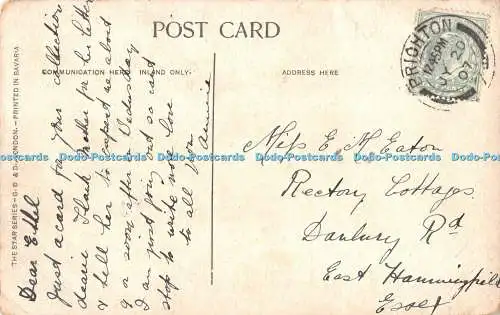 POST CARD
COMMUNICATION HERE INLAND ONLY.
ADDRESS HERE
THE STAR SERIES - G. D. & D. LONDON. - PRINTED IN BAVARIA
BRIGHTON
7.45PM
20
07
Dear Ethel
Just a card for your collection
dearie Thank Mother for her letter
& tell her to expect me about
9 a.m. soon after a Wednesday
I am just going out so cant
stop to write more love
to all from
Annie
Miss E. M. Eaton
Rectory Cottages
Danbury Rd
East Hanningfield
Essex
Dodo-Postcards Dodo-Postcards Dodo-Postcards Dodo-Postcards Dodo-Postcards Dodo-Postcards